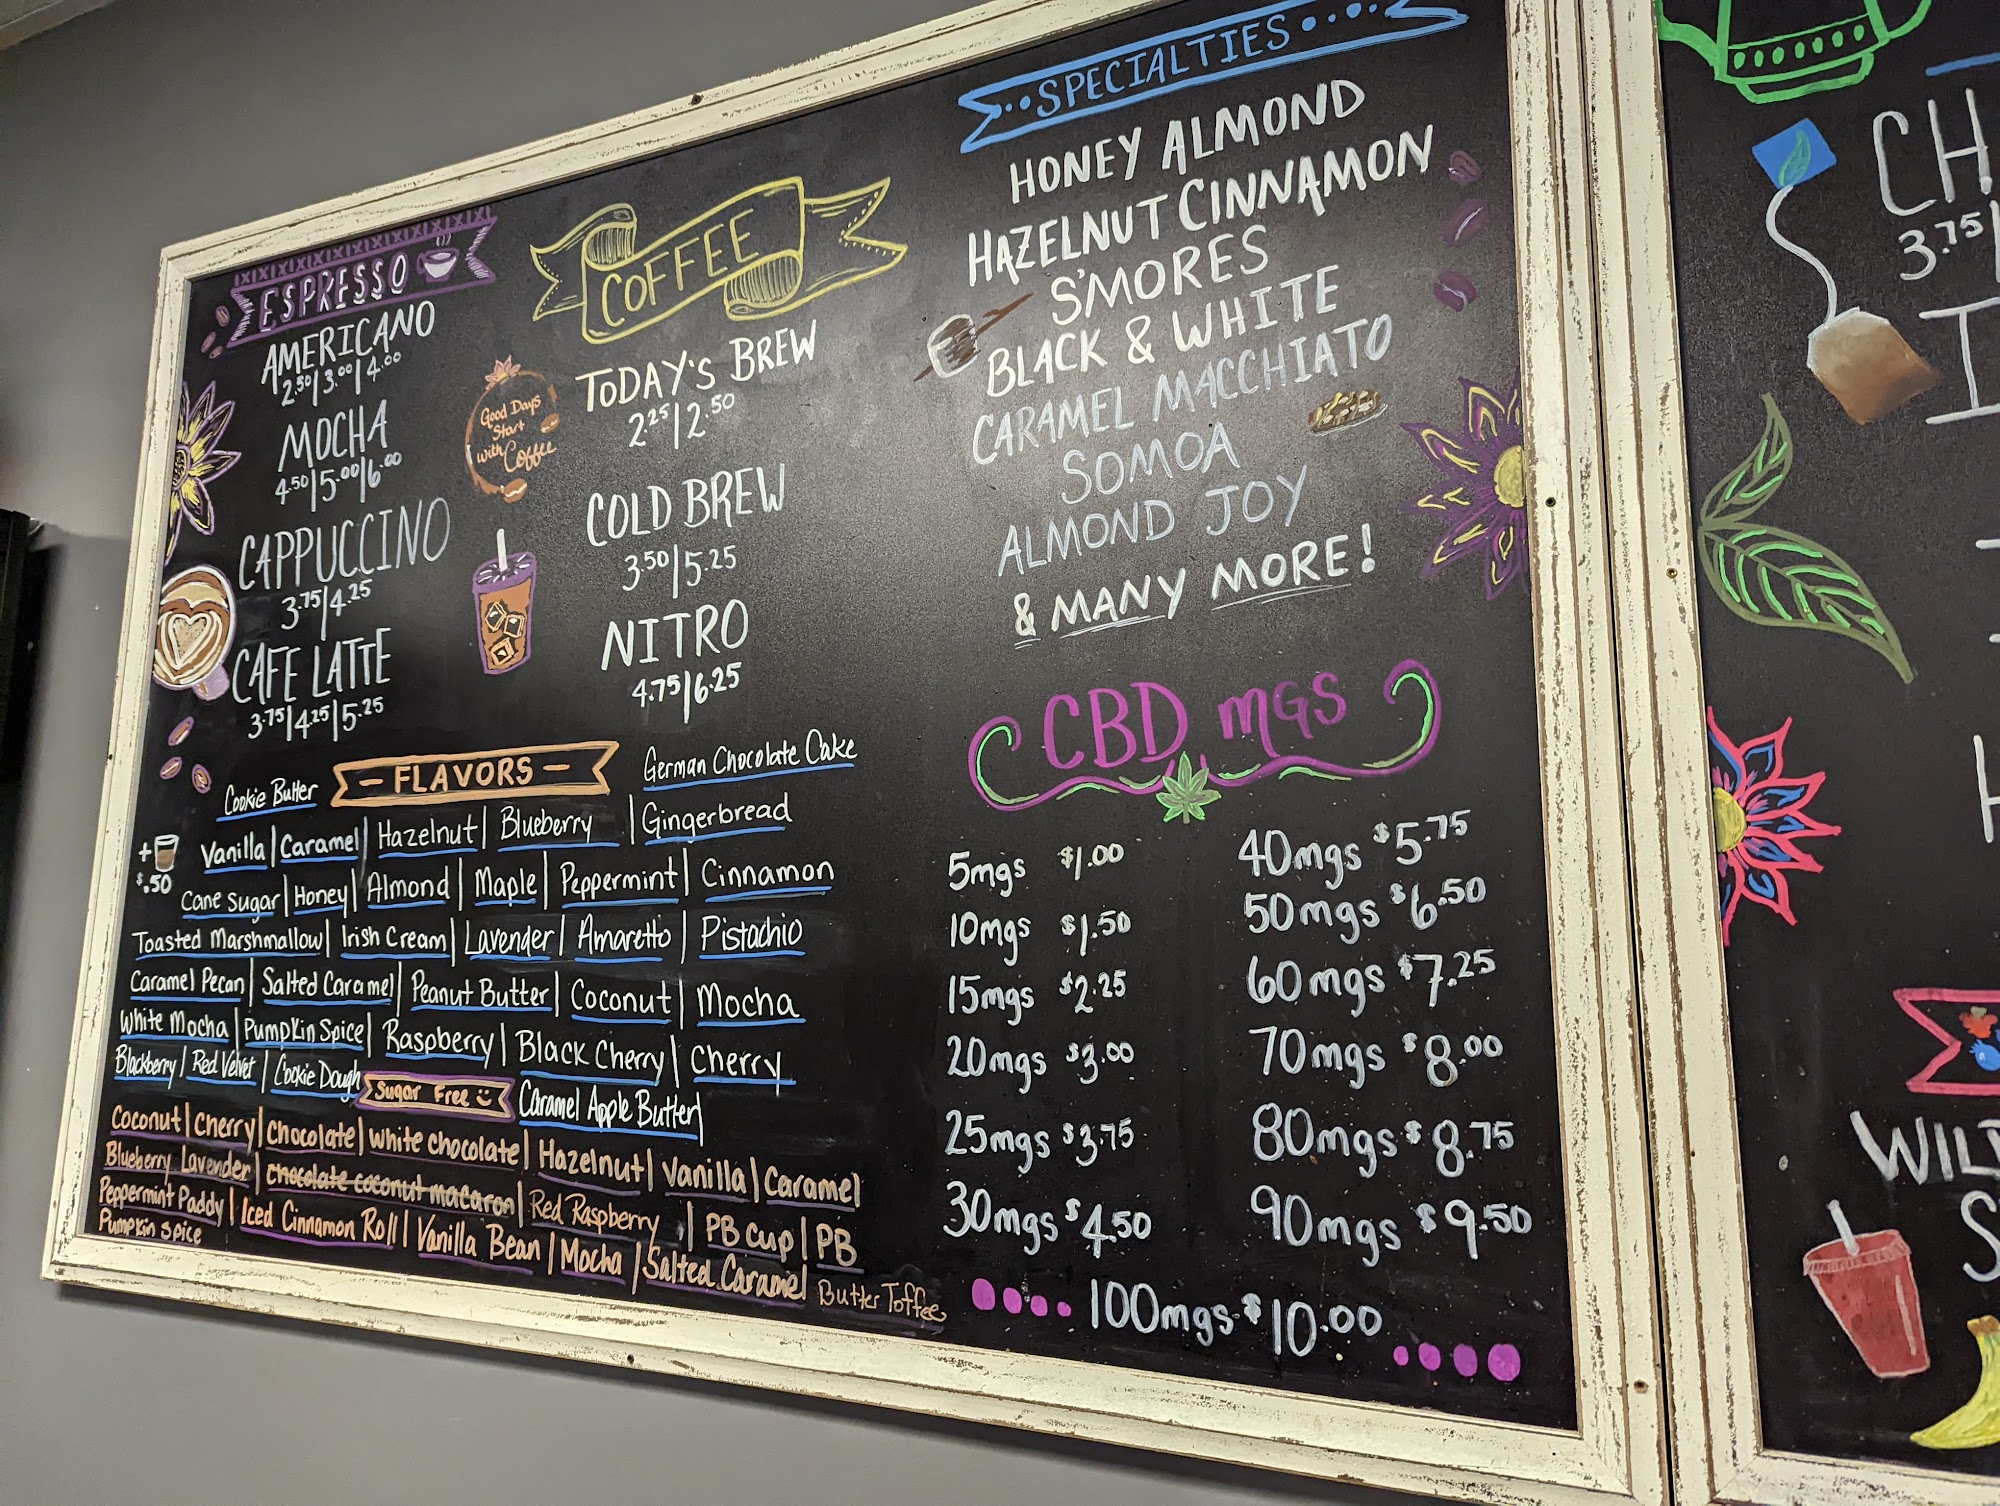 ESPRESSO
AMERICANO
2.50|3.00|4.00
MOCHA
4.50|5.00|6.00
CAPPUCCINO
3.75|4.25
CAFE LATTE
3.75|4.25|5.25
Good Days
Start
with Coffee
COFFEE
TODAY'S BREW
2.25|2.50
COLD BREW
3.50|5.25
NITRO
4.75|6.25
SPECIALTIES
HONEY ALMOND
HAZELNUT CINNAMON
S'MORES
BLACK & WHITE
CARAMEL MACCHIATO
SOMOA
ALMOND JOY
& MANY MORE!
- FLAVORS -
Cookie Butter
German Chocolate Cake
+
$.50
Vanilla | Caramel | Hazelnut | Blueberry | Gingerbread
Cane Sugar | Honey | Almond | Maple | Peppermint | Cinnamon
Toasted Marshmallow | Irish Cream | Lavender | Amaretto | Pistachio
Caramel Pecan | Salted Caramel | Peanut Butter | Coconut | Mocha
White Mocha | Pumpkin Spice | Raspberry | Black Cherry | Cherry
Blackberry | Red Velvet | Cookie Dough
Caramel Apple Butter |
Sugar Free
Coconut | Cherry | Chocolate | White chocolate | Hazelnut | Vanilla | Caramel
Blueberry Lavender | Chocolate coconut macaron | Red Raspberry | PB Cup | PB
Peppermint Paddy | Iced Cinnamon Roll | Vanilla Bean | Mocha | Salted Caramel
Pumpkin Spice
Butter Toffee
CBD MGS
5mgs $1.00
10mgs $1.50
15mgs $2.25
20mgs $3.00
25mgs $3.75
30mgs $4.50
40mgs $5.75
50mgs $6.50
60mgs $7.25
70mgs $8.00
80mgs $8.75
90mgs $9.50
100mgs $10.00
CH
3.75|